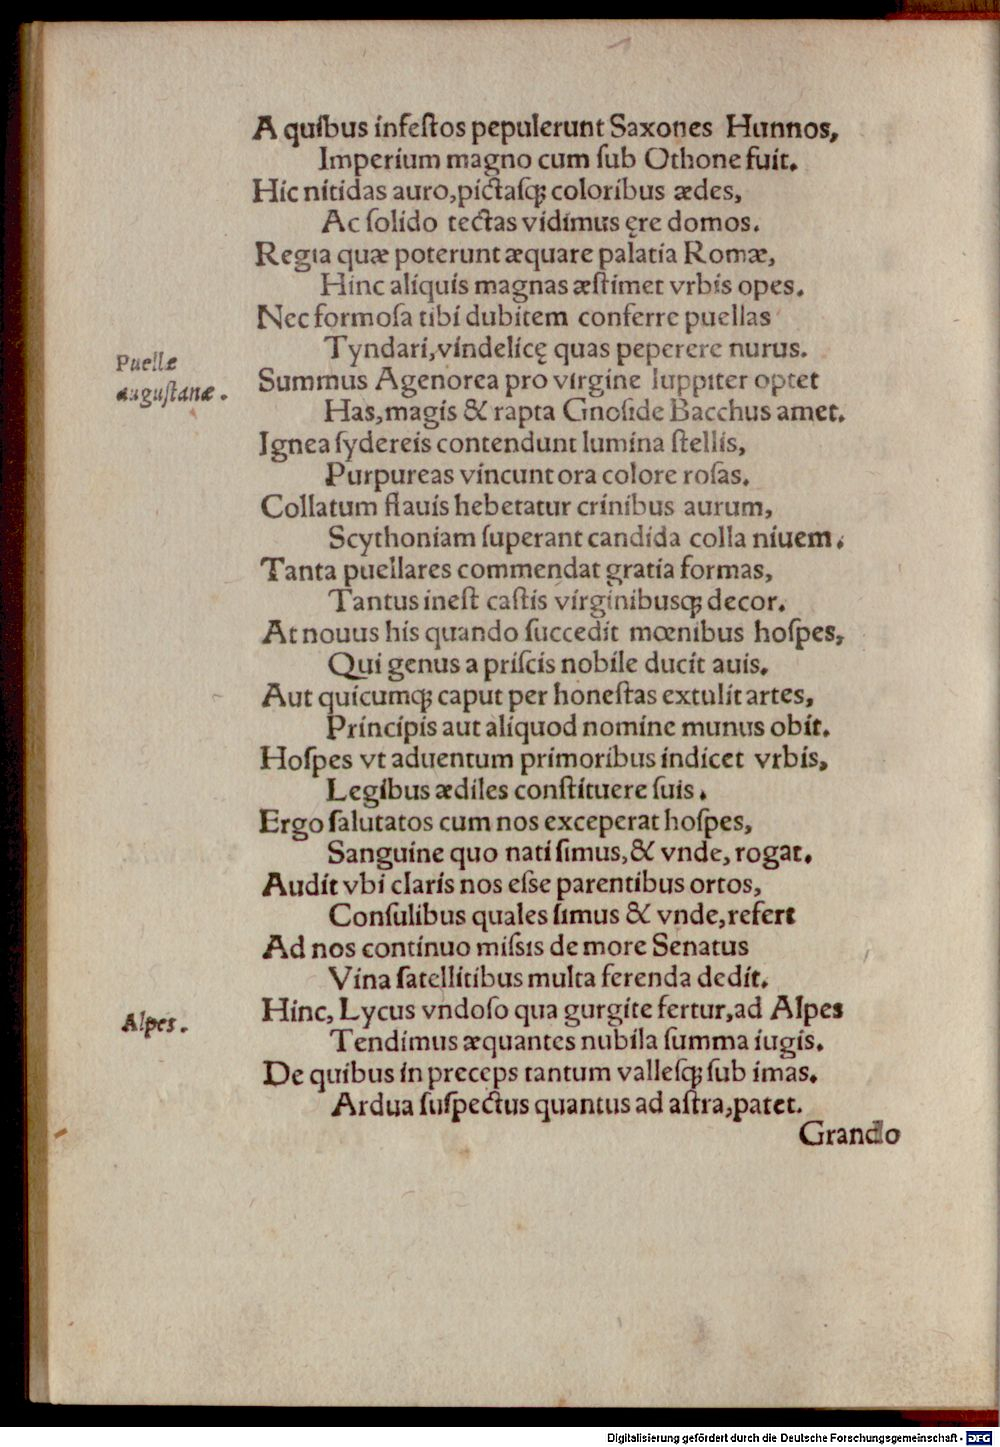 A quibus infeſtos pepulerunt Saxones Hunnos,
Imperium magno cum ſub Othone fuit.
Hic nitidas auro, pictaſq; coloribus ædes,
Ac ſolido tectas vidimus ęre domos.
Regia quæ poterunt æquare palatia Romæ,
Hinc aliquis magnas æſtimet vrbis opes.
Nec formoſa tibi dubitem conferre puellas
Tyndari, vindelicę quas peperere nurus.
Puellæ
auguſtanæ.
Summus Agenorea pro virgine Iuppiter optet
Has, magis & rapta Gnoſide Bacchus amet.
Ignea ſydereis contendunt lumina ſtellis,
Purpureas vincunt ora colore roſas.
Collatum flauis hebetatur crinibus aurum,
Scythoniam ſuperant candida colla niuem.
Tanta puellares commendat gratia formas,
Tantus ineſt caſtis virginibusq; decor.
At nouus his quando ſuccedit mœnibus hoſpes,
Qui genus a priſcis nobile ducit auis.
Aut quicumq; caput per honeſtas extulit artes,
Principis aut aliquod nomine munus obit.
Hoſpes vt aduentum primoribus indicet vrbis,
Legibus ædiles conſtituere ſuis.
Ergo ſalutatos cum nos exceperat hoſpes,
Sanguine quo nati ſimus, & vnde, rogat.
Audit vbi claris nos eſse parentibus ortos,
Conſulibus quales ſimus & vnde, refert
Ad nos continuo miſsis de more Senatus
Vina ſatellitibus multa ferenda dedit.
Hinc, Lycus vndoſo qua gurgite fertur, ad Alpes
Alpes.
Tendimus æquantes nubila ſumma iugis.
De quibus in preceps tantum valleſq; ſub imas.
Ardua ſuſpectus quantus ad aſtra, patet.
Grando
Digitalisierung gefördert durch die Deutsche Forschungsgemeinschaft - DFG